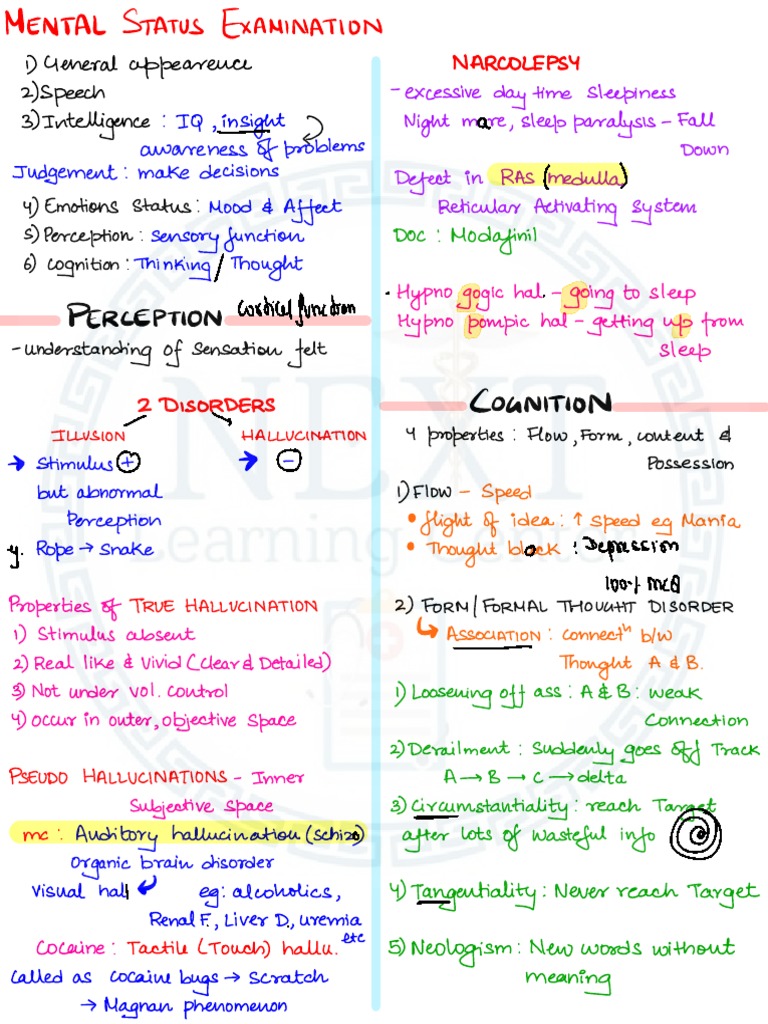 MENTAL STATUS EXAMINATION
1) General appearence
2) Speech
3) Intelligence : IQ , insight
awareness of problems
Judgement : make decisions
4) Emotions Status : Mood & Affect
5) Perception : sensory function
6) Cognition : Thinking / Thought
PERCEPTION cortical function
- understanding of sensation felt
2 DISORDERS
ILLUSION
HALLUCINATION
→ Stimulus +
→ -
but abnormal
Perception
eg. Rope → Snake
Properties of TRUE HALLUCINATION
1) Stimulus absent
2) Real like & Vivid (Clear & Detailed)
3) Not under vol. control
4) occur in outer, objective space
PSEUDO HALLUCINATIONS - Inner
Subjective space
mc : Auditory hallucination (schizo)
organic brain disorder
visual hall eg: alcoholics,
Renal F., Liver D., uremia
etc
Cocaine : Tactile (Touch) hallu.
called as cocaine bugs → scratch
→ Magnan phenomenon
NARCOLEPSY
- excessive day time sleepiness
Night mare, sleep paralysis - Fall
Down
Defect in RAS (medulla)
Reticular Activating System
DOC : Modafinil
. Hypno gogic hal. - going to sleep
Hypno pompic hal - getting up from
sleep
COGNITION
4 properties : Flow, Form, content &
Possession
1) FLOW - Speed
• flight of idea : ↑ speed eg Mania
• Thought block : Depression
100% MCQ
2) FORM / FORMAL THOUGHT DISORDER
ASSOCIATION : connectn b/w
Thought A & B.
1) Loosening off ass : A & B : weak
Connection
2) Derailment : Suddenly goes off Track
A → B → C → delta
3) Circumstantiality : reach Target
after lots of wasteful info
4) Tangentiality : Never reach Target
5) Neologism : New words without
meaning
NEXT
Learning